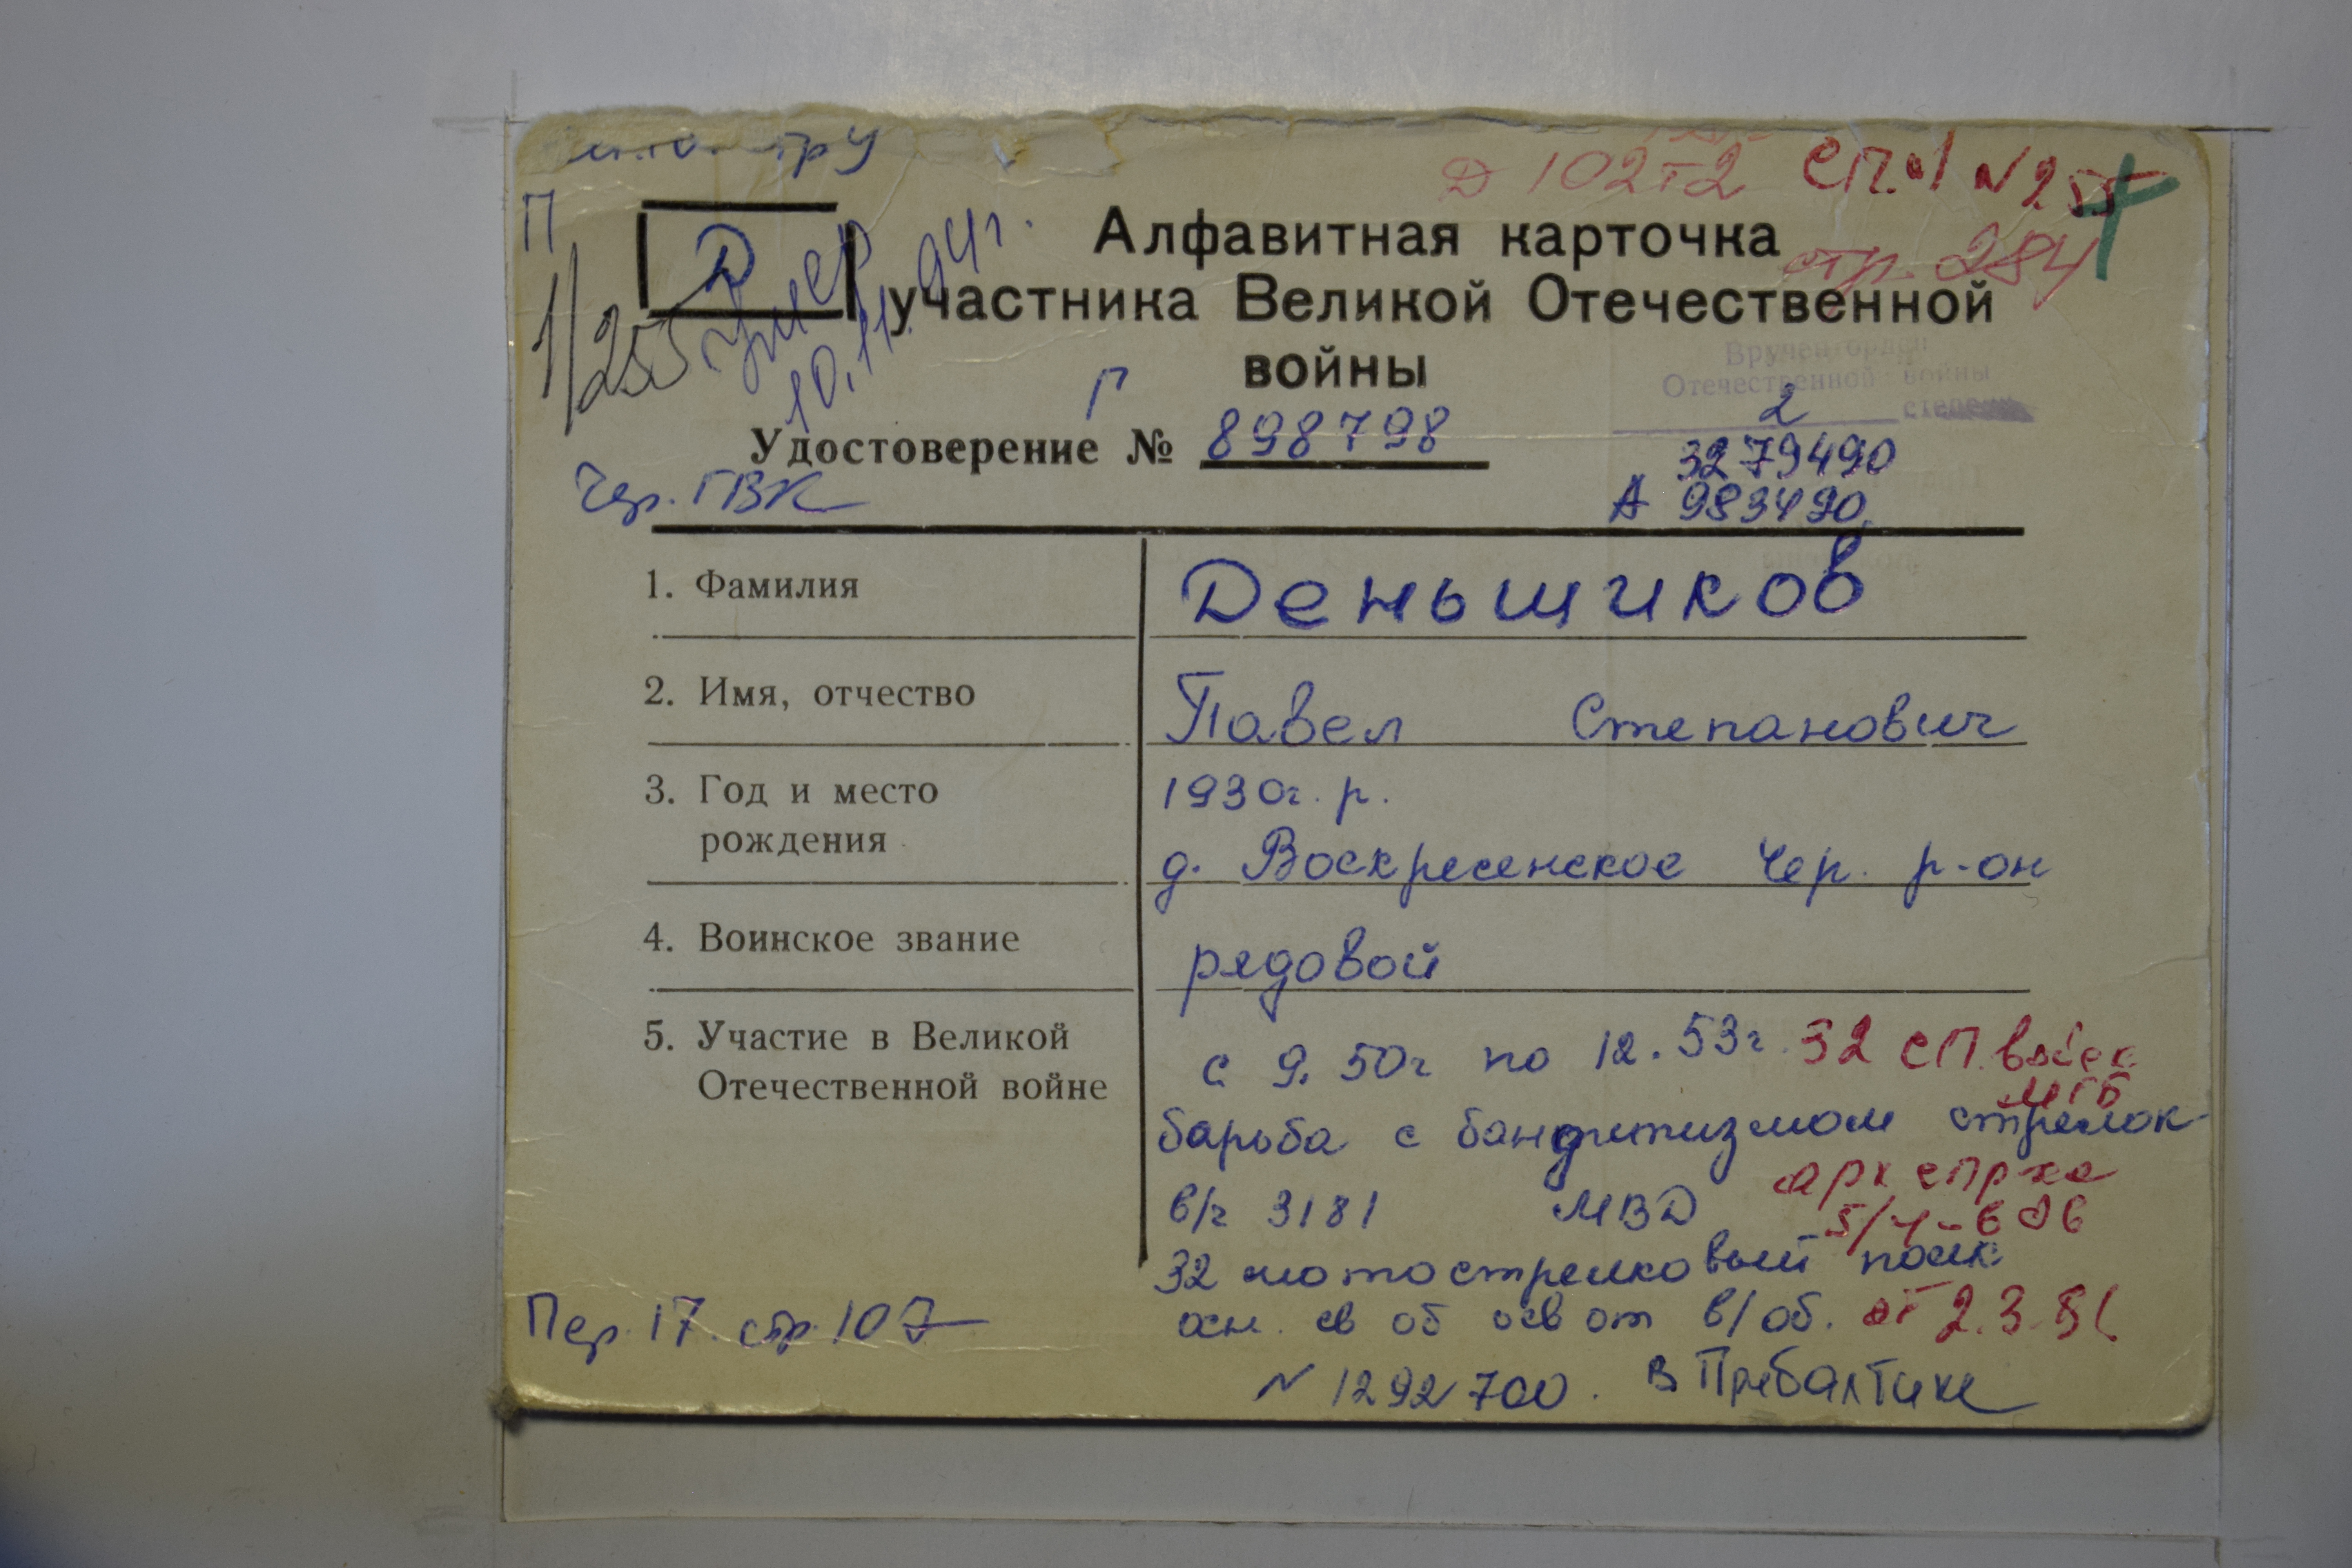 тру
Д 102т2 СП.И1 N 255
П
Д
1/255
умер
10.11.94г.
Алфавитная карточка
стр. 284
участника Великой Отечественной
войны
Вручен орден
Отечественной войны
2 степени
Г
Удостоверение № 898798
3279490
Чер. ГВК
А 983490
1. Фамилия Деньщиков
2. Имя, отчество Павел Степанович
3. Год и место 1930г. р.
рождения д. Воскресенское Чер. р-он
4. Воинское звание рядовой
5. Участие в Великой с 9. 50г по 12. 53г. 32 СП. войск
Отечественной войне МГБ
барьба с бандитизмом стрелок
арх спрка
в/ч 3181 МВД
32 мотострелковый полк
осн. св об осв от в/об. от 2.3.81
Пер. 17. стр. 107
N 1292700. в Прибалтике